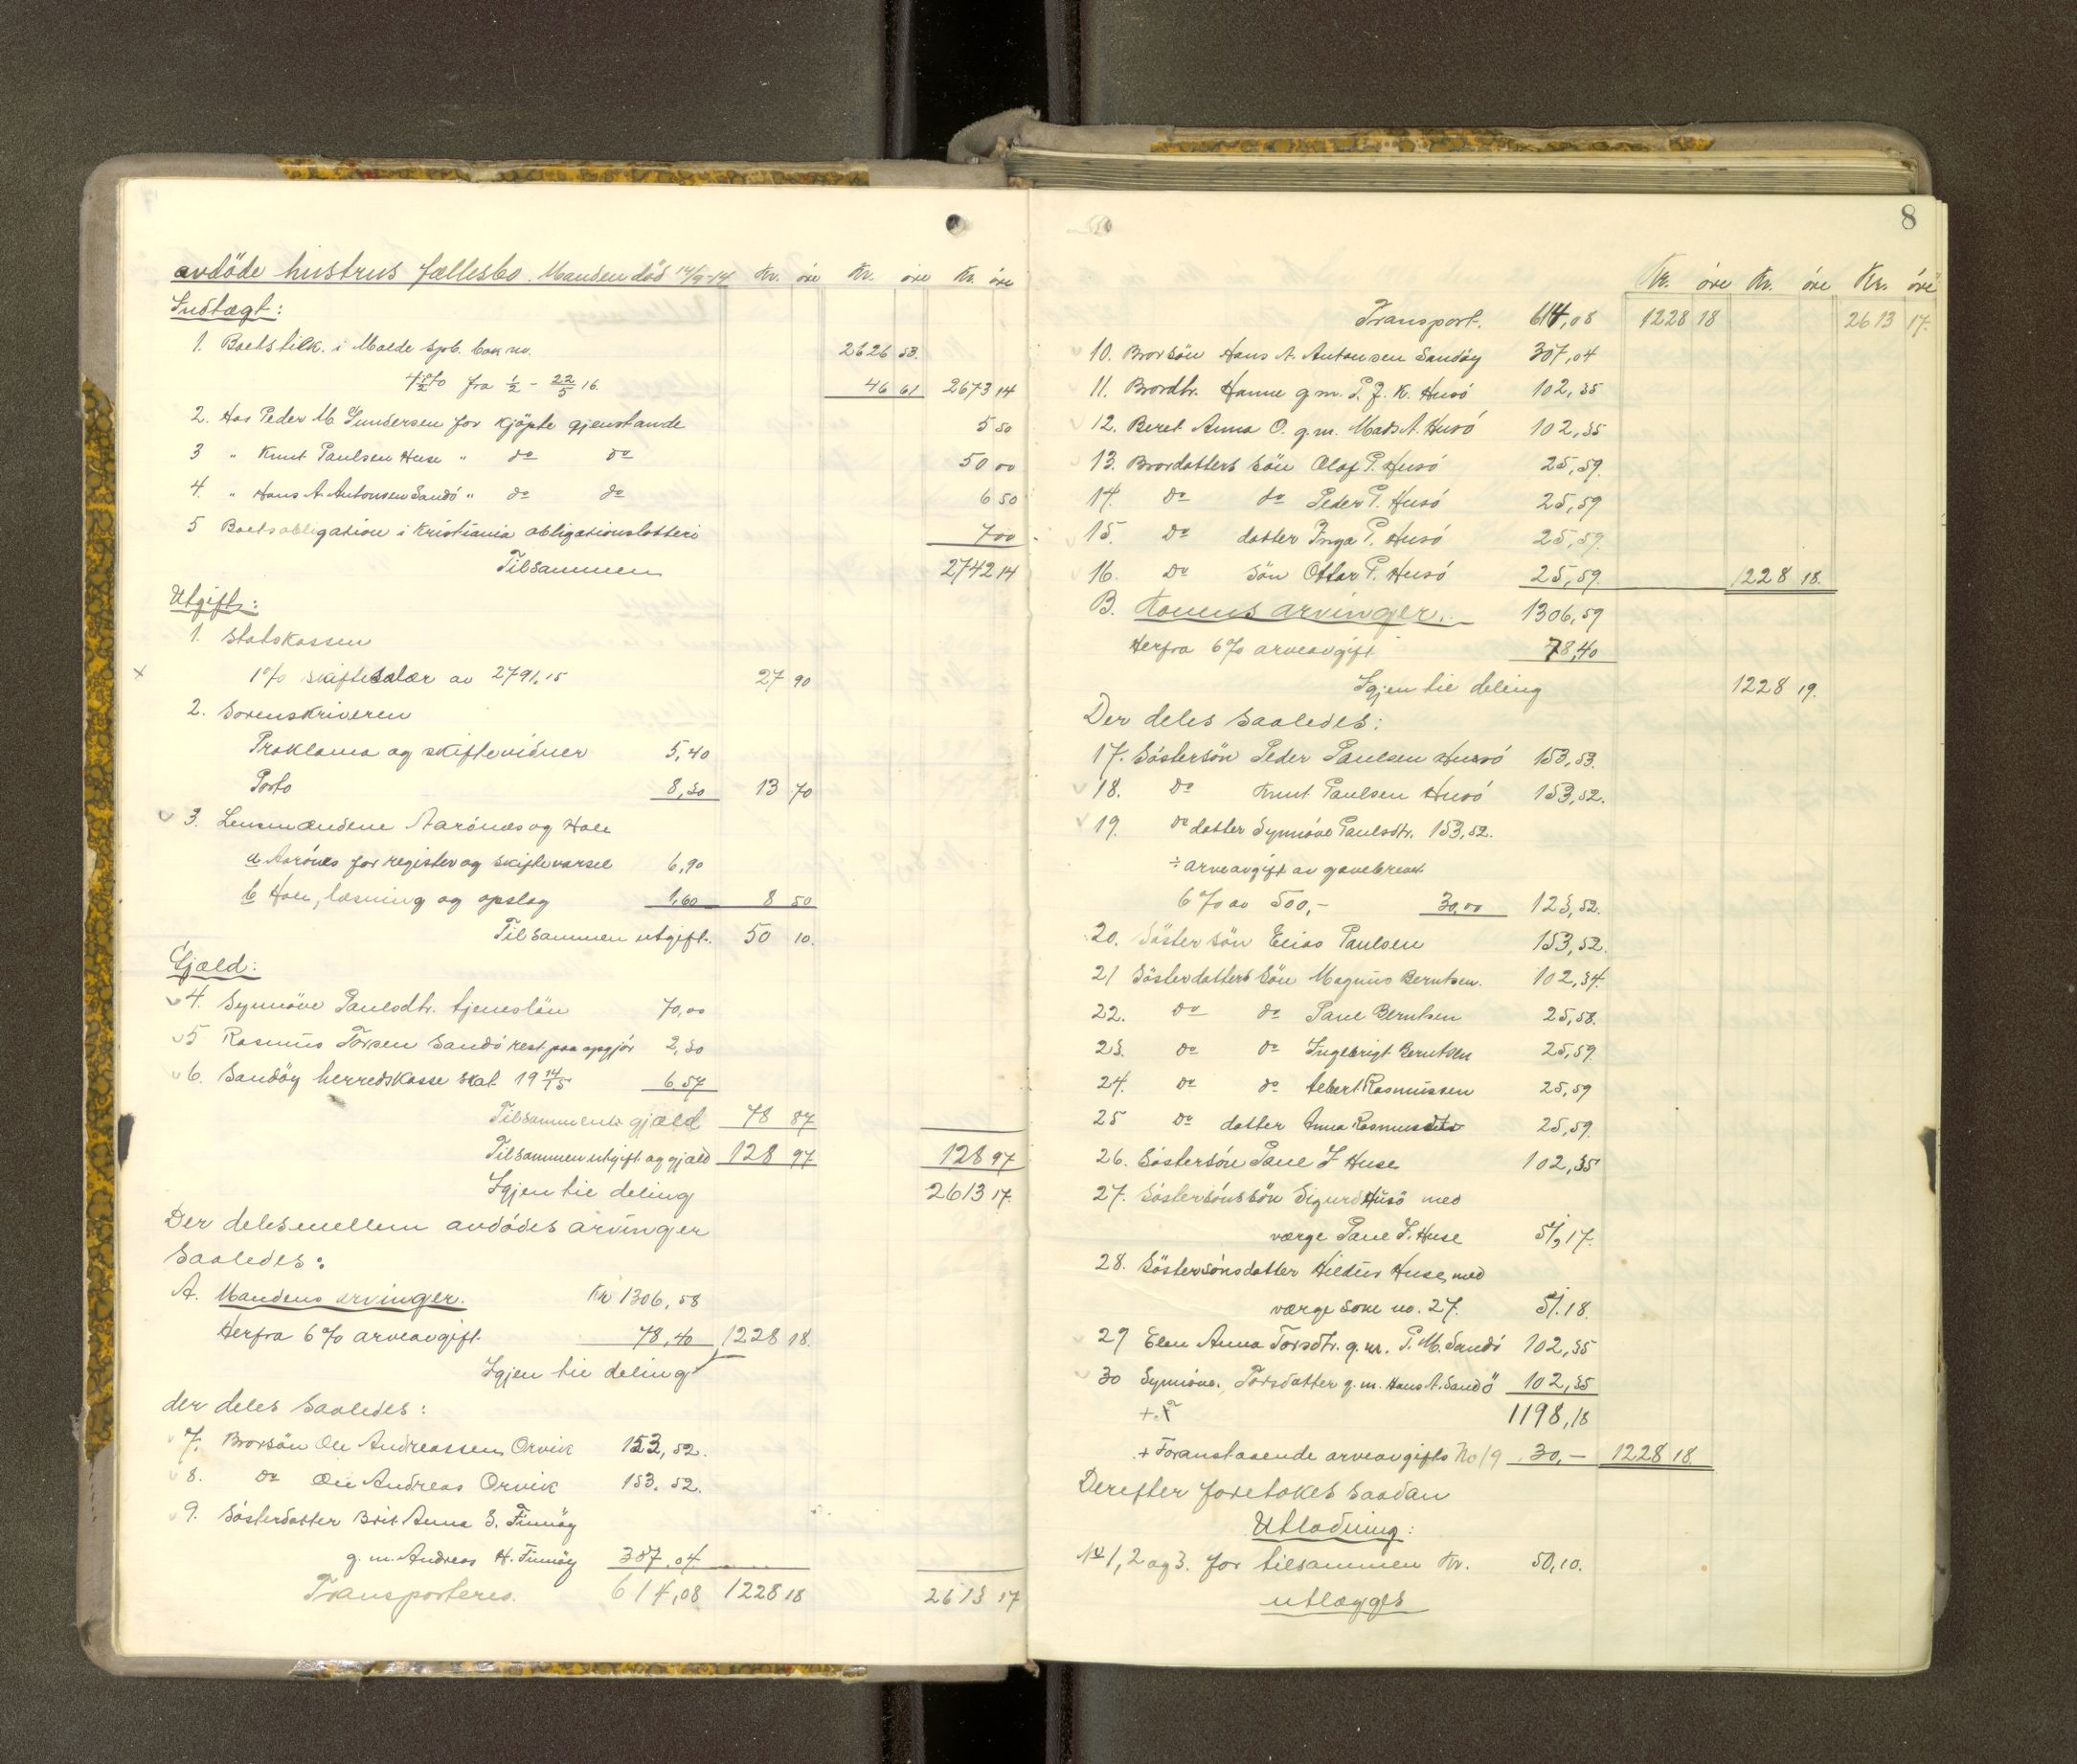 avdöde hustrus fællesbo. Manden död 14/9-14 Kr. öre Kr. öre Kr. öre
Indtægt:
1. Boets tilk. i Molde spb. bok no. 2626 53.
4 1/2 % fra 1/2 - 22/5 16. 46 61 2673 14
2. Hos Peder M. Gundersen for kjöpte gjenstande 5 50
3 " Knut Paulsen Huse " do do 50 00
4. " Hans A. Antonsen Sandö " do do 6 50
5 Boets obligation i Kristiania obligationslotteri 7 00
Tilsammen 2742 14
Utgift:
1. Statskassen
x 1% skiftesalær av 2791,15 27 90
2. Sorenskriveren
Proklama og skiftevidner 5,40
Porto 8,30 13 70
3. Lensmændene Aarönes og Hole
a Aarönes for register og skiftevarsel 6,90
b Hole, læsning og opslag 1,60 8 50
Tilsammen utgift. 50 10.
Gjæld:
4. Synnöve Paulsdtr. tjenestelön 70,00
5 Rasmus Torsen Sandö rest paa opgjör 2,30
6. Sandöy herredskasse skat 19 14/15 6,57
Tilsammen gjæld 78 87
Tilsammen utgift og gjæld 128 97 128 97
Igjen til deling 2613 17.
Der deles mellem avdödes arvinger
saaledes:
A. Mandens arvinger. Kr 1306,58
Herfra 6% arveavgift. 78,40 1228 18.
Igjen til deling
der deles saaledes:
7. Brorsön Ole Andreassen Orvik 153,52.
8. do Ole Andreas Orvik 153.52.
9. Sösterdatter Brit Anna S. Finnöy
g.m. Andreas H. Finnöy 307.04
Transporteres. 614,08 1228 18 2613 17
8
Kr. öre Kr. öre Kr. öre
Transport. 614,08 1228 18 2613 17.
10. Brorsön Hans A. Antonsen Sandöy 307,04
11. Brordtr. Hanne g.m. P. J. K. Husö 102,35
12. Beret Anna O. g.m. Mads A. Husö 102,35
13. Brordatters sön Olaf P. Husö 25,59.
14. do do Peder P. Husö 25,59
15. Do datter Inga P. Husö 25,59.
16. Do sön Ottar P. Husö 25,59. 1228 18.
B. Konens arvinger. 1306,59
Herfra 6% arveavgift 78,40
Igjen til deling 1228 19.
Der deles saaledes:
17. Söstersön Peder Paulsen Husö 153,53.
18. Do Knut Paulsen Husö 153,52.
19. do datter Synnöve Paulsdtr. 153,52.
÷ arveavgift av gavebrevet
6% av 500,- 30,00 123,52.
20. Söster sön Elias Paulsen 153,52.
21 Sösterdatters sön Magnus Berntsen. 102,34.
22. Do do Paul Berntsen 25,58.
23. Do Do Ingebrigt Berntsen 25,59
24. Do do Albert Rasmussen 25,59
25 Do datter Anna Rasmusdtr 25,59.
26. Söstersön Paul J Huse 102,35
27. Söstersönssön Sigurd Husö med
værge Paul J. Huse 51,17.
28. Söstersönsdatter Hildur Huse, med
værge som no. 27. 51.18.
29 Elen Anna Torsdtr. g.m. P. M. Sandö 102,35
30 Synnöve. Torsdatter g.m. Hans A. Sandö 102,35
1198,18
+ Foranstaaende arveavgift No 19 30,- 1228 18.
Derefter foretokes saadan
Utlodning:
No 1, 2 og 3. for tilsammen Kr. 50,10.
utlægges